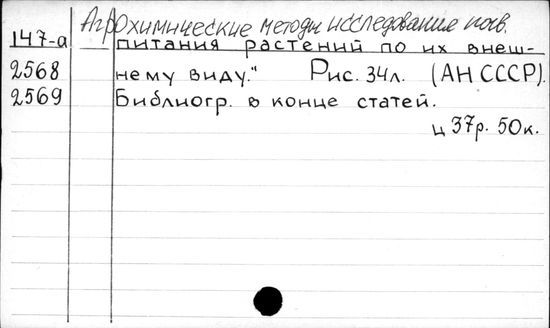 Агрохимические методы исследования почв.
147-а питания растений по их внеш-
2568 нему виду." Рис. 34л. (АН СССР).
2569 Библиогр. в конце статей.
ц 37р. 50к.